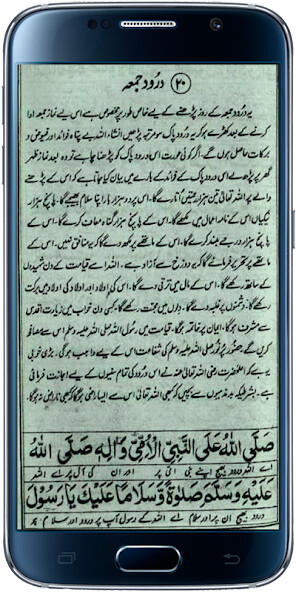 ۲۰ درود جمعہ
یہ درود جمعہ کے روز پڑھنے کے لیے خاص طور پر مخصوص ہے اس لیے نماز جمعہ ادا
کرنے کے بعد کھڑے ہو کر یہ درود پاک سو مرتبہ پڑھیں انشاء اللہ بے پناہ فوائد اور فیوض و
برکات حاصل ہوں گے۔ اگر کوئی عورت اس درود پاک کو پڑھنا چاہے تو وہ بعد نماز ظہر
گھر پر پڑھے اس درود پاک کے فوائد کے بارے میں بیان کیا جاتا ہے کہ اس کے پڑھنے
والے پر اللہ تعالیٰ تین ہزار رحمتیں اتارے گا۔ اس پر دو ہزار بار اپنا سلام بھیجے گا۔ پانچ ہزار
نیکیاں اس کے نامہ اعمال میں لکھے گا۔ اس کے پانچ ہزار گناہ معاف کرے گا۔ اس کے
پانچ ہزار درجے بلند کرے گا۔ اس کے ماتھے پر لکھ دے گا کہ یہ منافق نہیں۔ اس کے
ماتھے پر تحریر فرمائے گا کہ یہ دوزخ سے آزاد ہے۔ اللہ اسے قیامت کے دن شہیدوں
کے ساتھ رکھے گا۔ اس کے مال میں ترقی دے گا۔ اس کی اولاد اور اولاد کی اولاد میں برکت
رکھے گا۔ دشمنوں پر غلبہ دے گا۔ دلوں میں محبت رکھے گا۔ کسی دن خواب میں زیارت اقدس
سے مشرف ہوگا۔ ایمان پر خاتمہ ہوگا۔ قیامت میں رسول اللہ صلی اللہ علیہ وسلم اس سے مصافحہ
کریں گے۔ حضور پر نور صلی اللہ علیہ وسلم کی شفاعت اس کے لیے واجب ہوگی۔ بڑی خوبی
یہ ہے کہ اعلیٰحضرت رضی اللہ تعالیٰ عنہ نے اس درود کی تمام سنیوں کے لیے اجازت فرمائی
ہے۔ بشرطیکہ بد مذہبوں سے بچیں کبھی اللہ تعالیٰ اس سے ایسا راضی ہوگا کہ کبھی ناراض نہ ہوگا۔
صَلَّى اللهُ عَلَى النَّبِيِّ الْأُمِّيِّ وَاٰلِهٖ صَلَّى اللهُ
اے اللہ درود بھیج اپنے نبی امی پر اور ان کی آل پر اے اللہ
عَلَيْهِ وَسَلَّمَ صَلٰوةً وَّسَلَامًا عَلَيْكَ يَا رَسُوْلَ
درود بھیج ان پر اور سلام اے اللہ کے رسول آپ پر درود اور سلام ہو